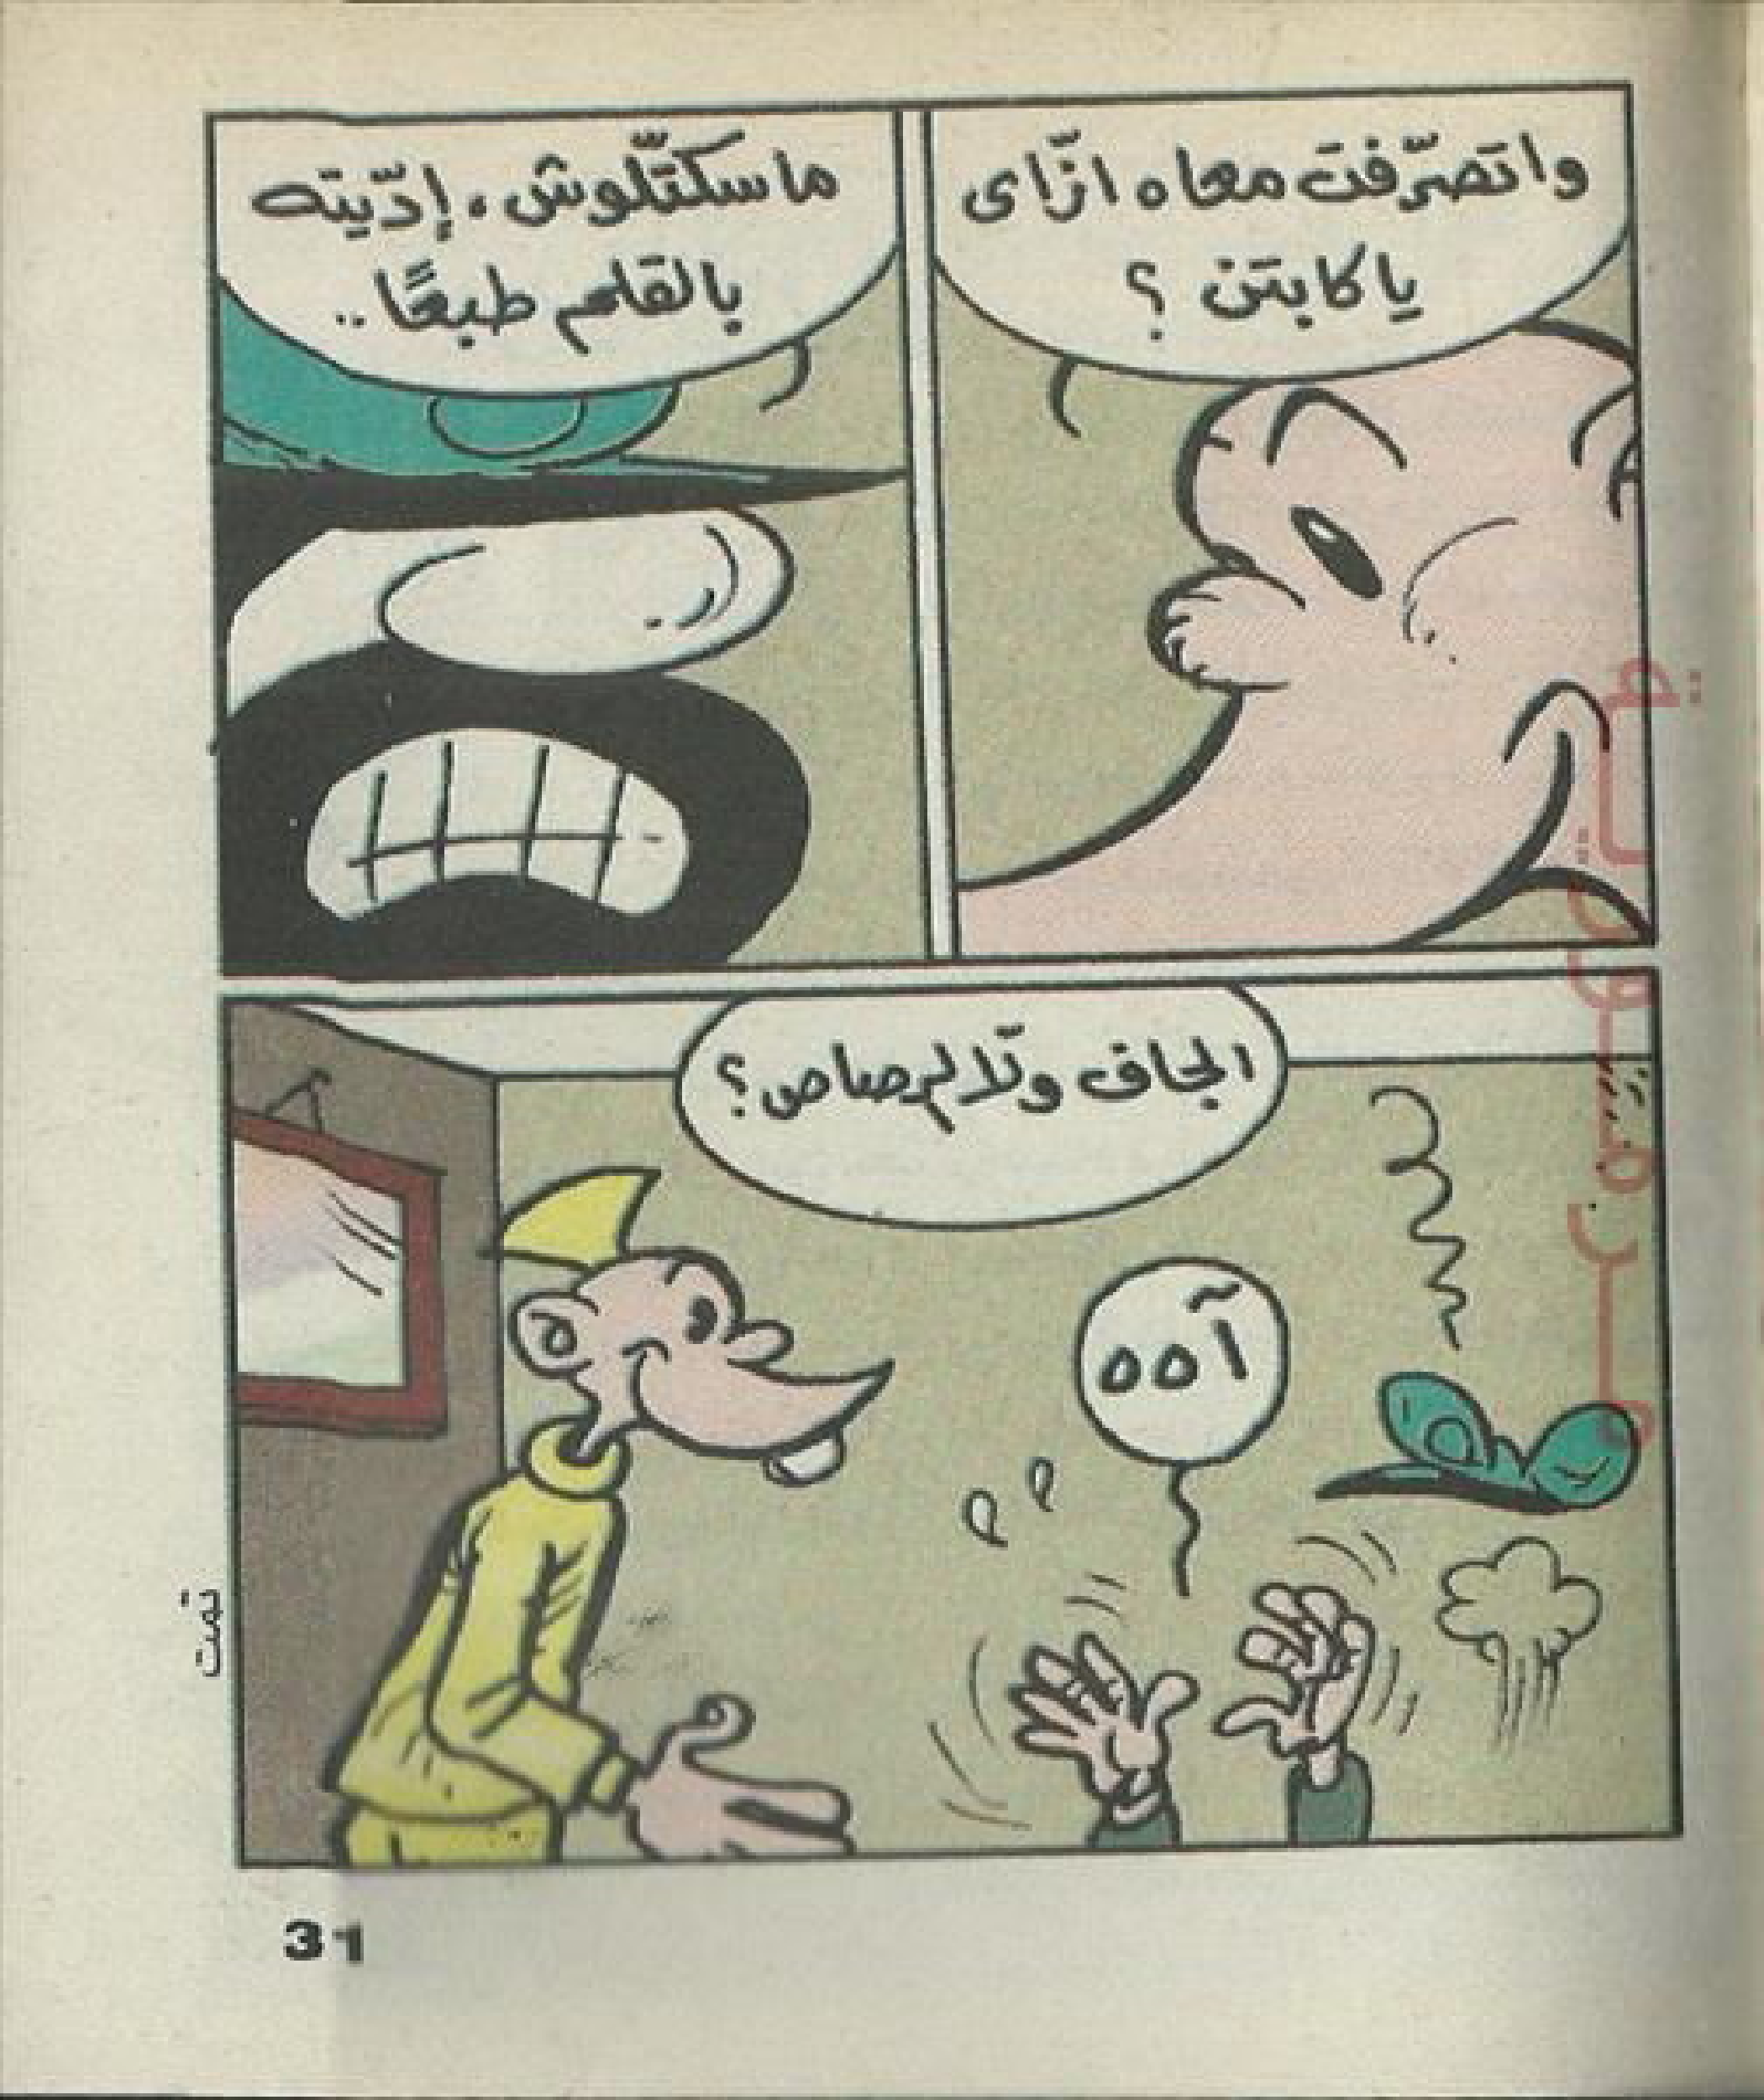 واتصرّفت معاه ازّاى
ياكابتن ؟
ماسكتّلوش، إدّيته
بالقلم طبعًا..
الجاف ولّا لرصاص؟
آه ه
تمّت
31